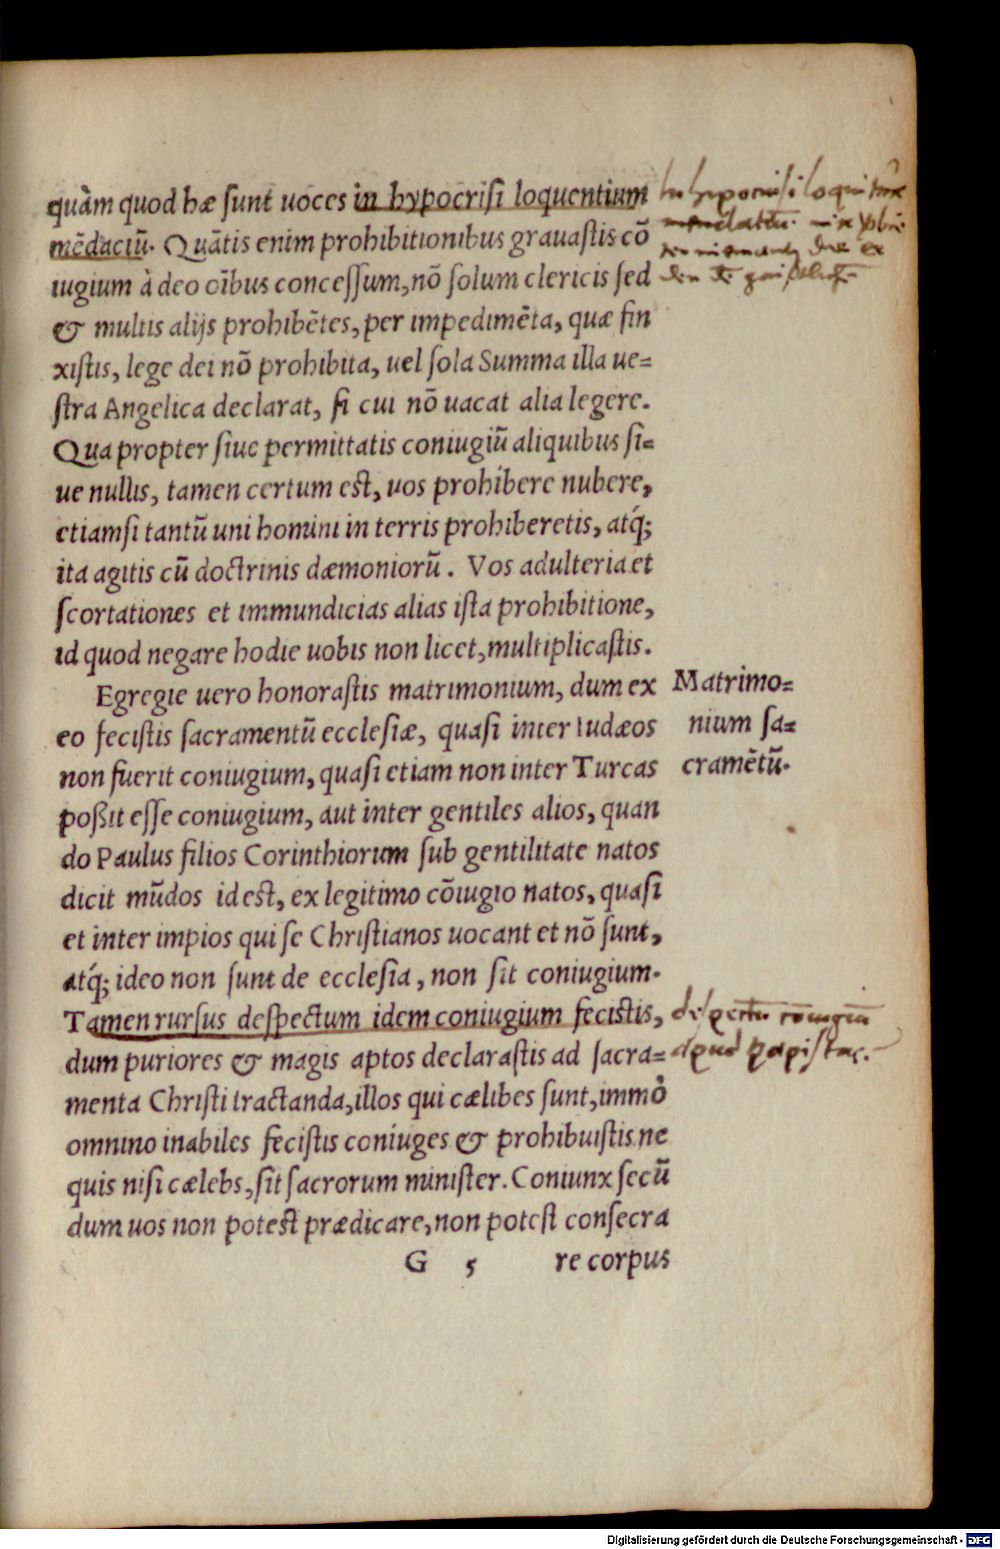 quàm quod hæ sunt uoces in hypocrisi loquentium
mẽdaciũ. Quãtis enim prohibitionibus grauastis cõ
iugium à deo oĩbus concessum, nõ solum clericis sed
& multis alijs prohibẽtes, per impedimẽta, quæ fin
xistis, lege dei nõ prohibita, uel sola Summa illa ue=
stra Angelica declarat, si cui nõ uacat alia legere.
Qua propter siue permittatis coniugiũ aliquibus si=
ue nullis, tamen certum est, uos prohibere nubere,
etiamsi tantũ uni homini in terris prohiberetis, atq́;
ita agitis cũ doctrinis dæmoniorũ. Vos adulteria et
scortationes et immundicias alias ista prohibitione,
id quod negare hodie uobis non licet, multiplicastis.
Egregie uero honorastis matrimonium, dum ex
eo fecistis sacramentũ ecclesiæ, quasi inter Iudæos
non fuerit coniugium, quasi etiam non inter Turcas
poßit esse coniugium, aut inter gentiles alios, quan
do Paulus filios Corinthiorum sub gentilitate natos
dicit mũdos id est, ex legitimo cõiugio natos, quasi
et inter impios qui se Christianos uocant et nõ sunt,
atq́; ideo non sunt de ecclesia, non sit coniugium.
Tamen rursus despectum idem coniugium fecistis,
dum puriores & magis aptos declarastis ad sacra=
menta Christi tractanda, illos qui cælibes sunt, immò
omnino inabiles fecistis coniuges & prohibuistis ne
quis nisi cælebs, sit sacrorum minister. Coniunx secũ
dum uos non potest prædicare, non potest consecra
G 5 re corpus
Matrimo=
nium sa=
cramẽtũ.
In hypocrisi
apud papistas.
Digitalisierung gefördert durch die Deutsche Forschungsgemeinschaft - DFG